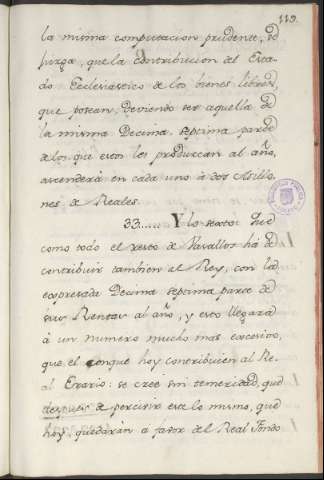 119.
la misma computacion prudente, se
juzga, que la contribucion del Esta-
do Eclesiastico de los bienes libres,
que posean, deviendo ser aquella de
la misma Decima septima parte
de los que estos les produzcan al año,
ascenderá en cada uno á dos Millo-
nes de Reales.
33...... Y lo sexto: Que
como todo el resto de Vasallos ha de
contribuir tambien al Rey, con la
expresada Decima septima parte de
sus Rentas al año, y esto llegará
á un numero mucho mas excesivo,
que el conque hoy contribuien al Re-
al Erario: se cree sin temeridad, que
despues de percivir este lo mismo, que
hoy, quedarán a favor del Real Fondo